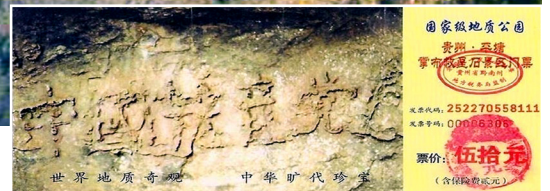 中國共產党
世界地质奇观 中华旷代珍宝
国家级地质公园
贵州·平塘
掌布藏字石景区门票
贵州省黔南州
发票代码：252270558111
发票号码：00006306
票价：伍拾元
（含保险费贰元）